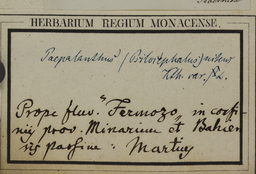 HERBARIUM REGIUM MONACENSE.
Paepalanthus (Psilocephalus) niteus
Kth. var. β2.
Prope fluv. "Formozo" in conf-
nijs prov. Minarum et Bahien-
sis passim: Martius